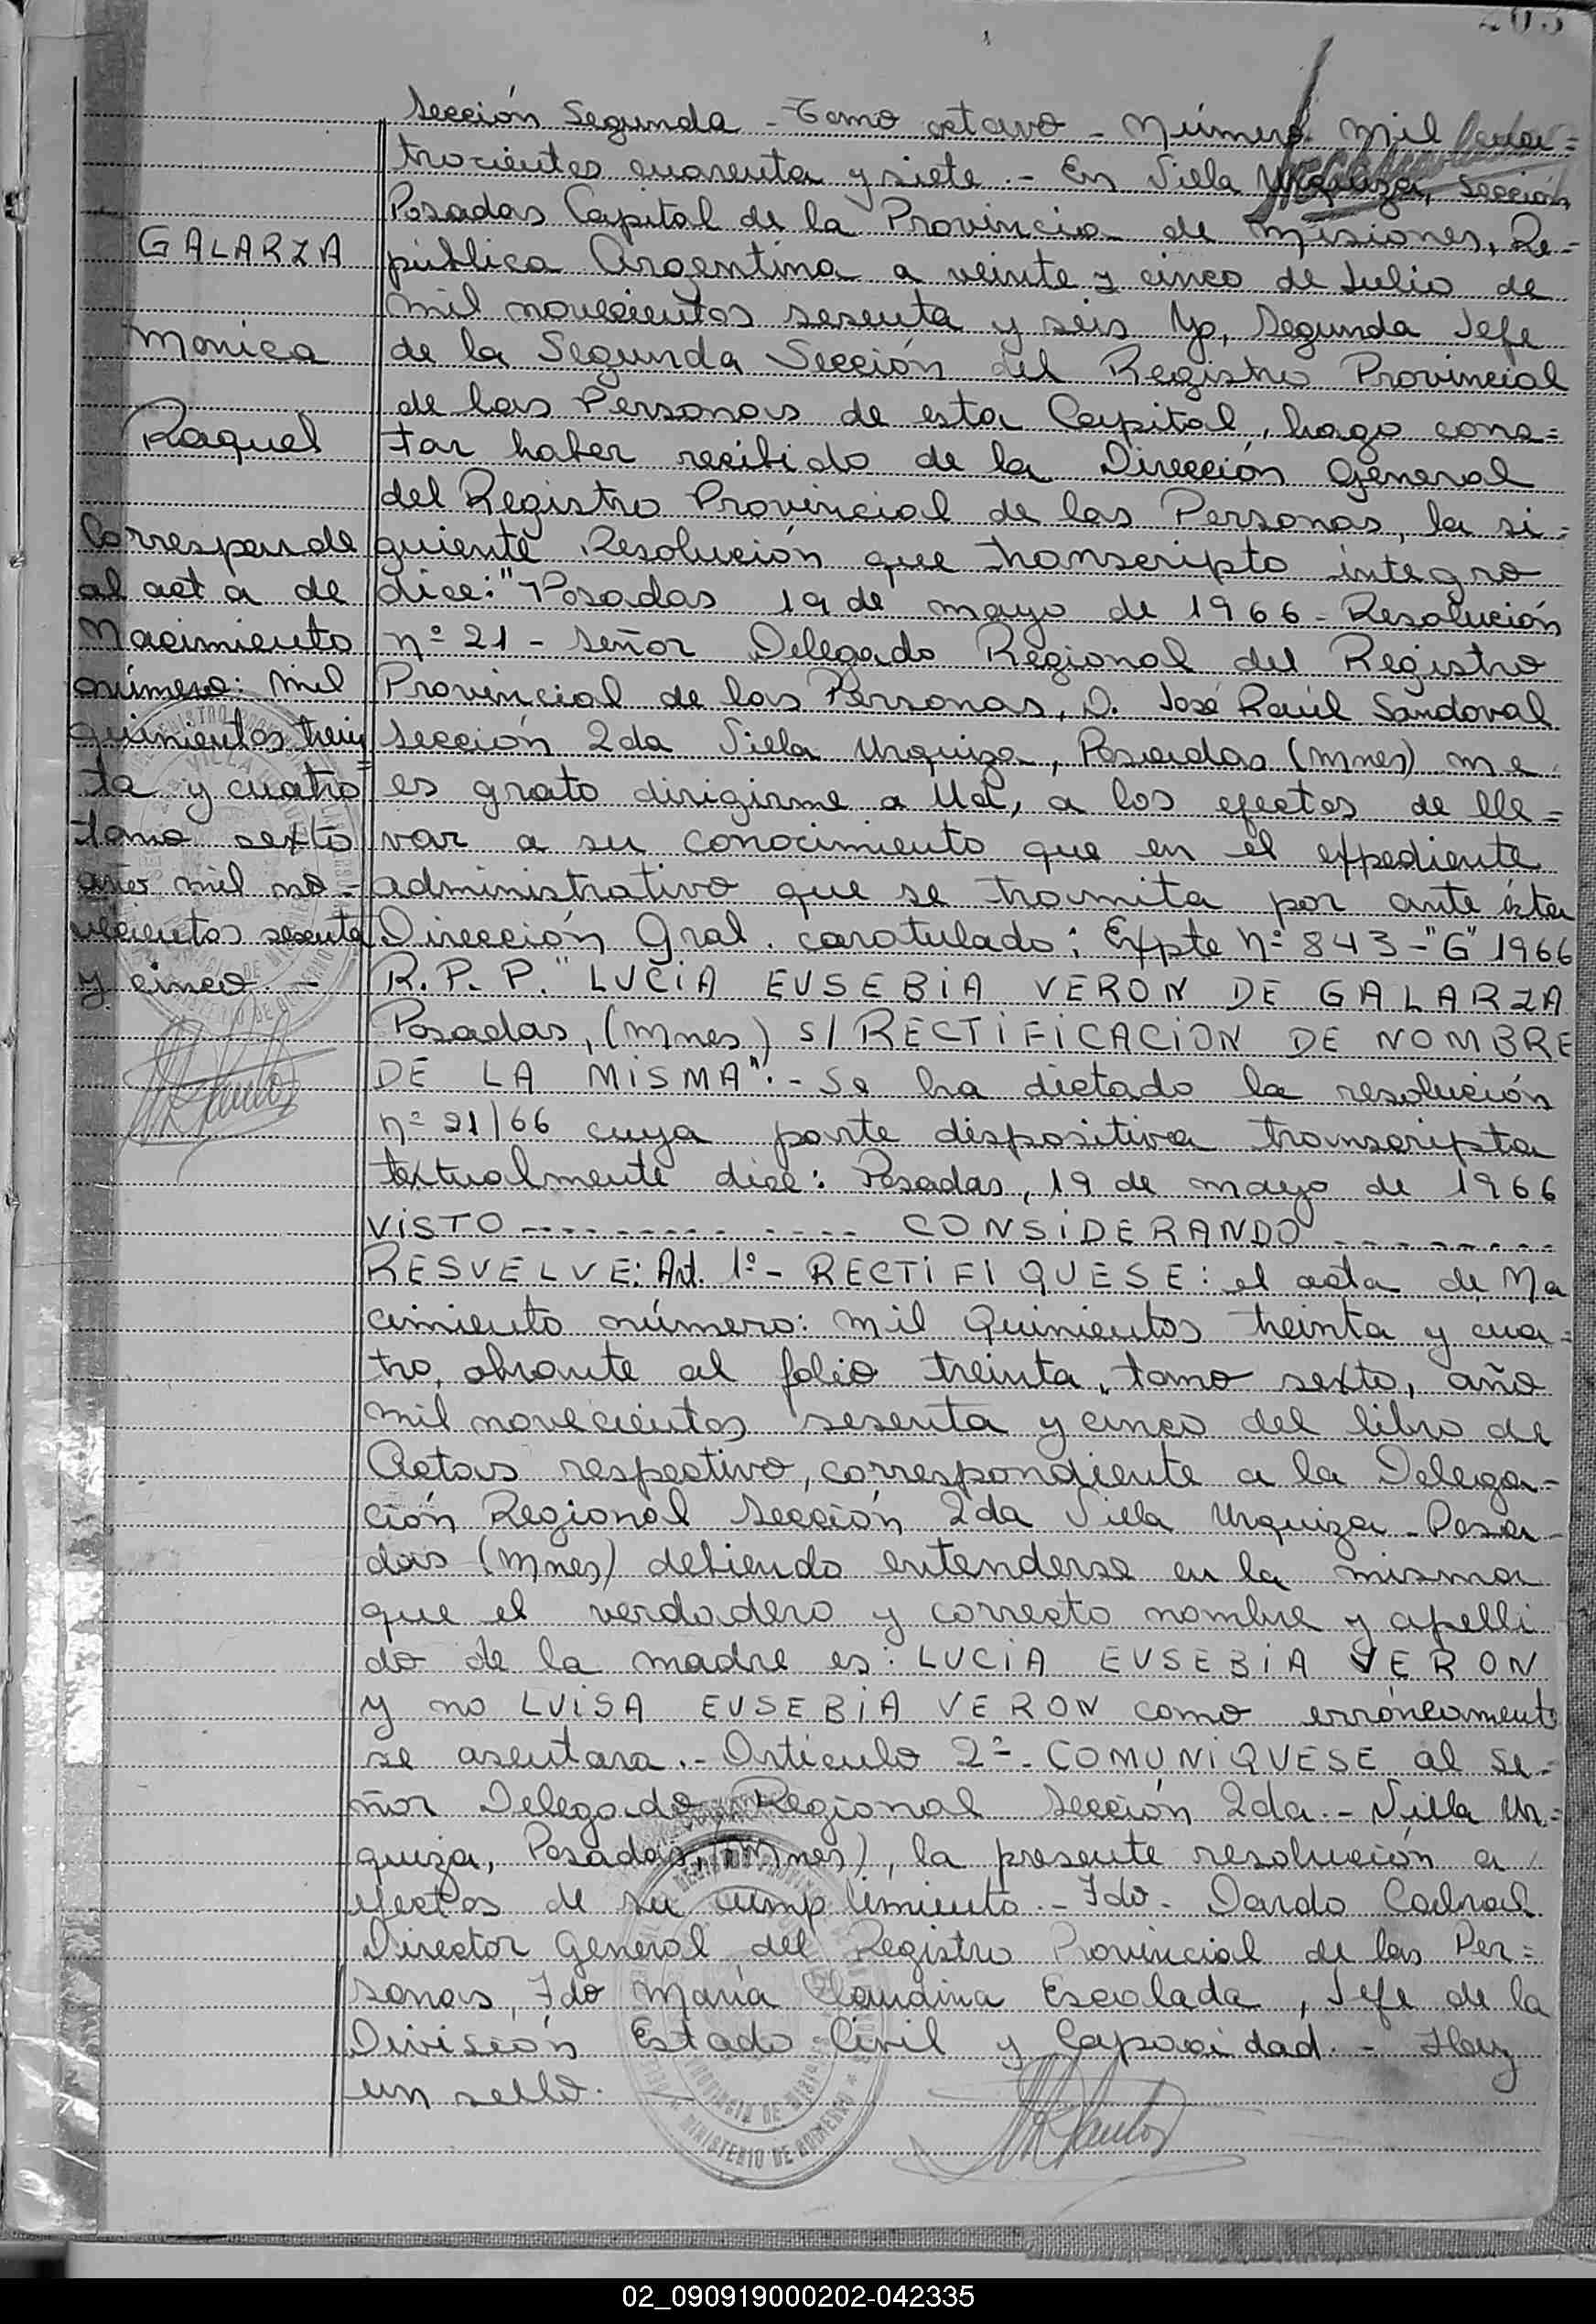 203
Sección Segunda - Tomo octavo - Número Mil cua=
trocientos cuarenta y siete .- En Villa Urquiza, Sección
Posadas Capital de la Provincia de Misiones, Re=
pública Argentina a veinte y cinco de Julio de
mil novecientos sesenta y seis Yo, Segunda Jefe
de la Segunda Sección del Registro Provincial
de las Personas de esta Capital, hago cons=
tar haber recibido de la Dirección General
del Registro Provincial de las Personas, la si=
guiente Resolución que transcripto íntegro
dice: "Posadas 19 de mayo de 1966 - Resolución
nº 21 - Señor Delegado Regional del Registro
Provincial de las Personas, D. José Raúl Sandoval
Sección 2da Villa Urquiza, Posadas (Mnes) me
es grato dirigirme a Ud, a los efectos de lle=
var a su conocimiento que en el expediente
administrativo que se tramita por ante ésta
Dirección Gral. caratulado: Expte nº 843 - "G" 1966
R.P.P. "LUCIA EUSEBIA VERON DE GALARZA
Posadas, (Mnes) s/ RECTIFICACION DE NOMBRE
DE LA MISMA".- Se ha dictado la resolución
nº 21/66 cuya parte dispositiva transcripta
textualmente dice: Posadas, 19 de mayo de 1966
VISTO ------------- CONSIDERANDO --------
RESUELVE: Art. 1º - RECTIFIQUESE: el acta de Na
cimiento número: Mil Quinientos treinta y cua=
tro, obrante al folio treinta, tomo sexto, año
mil novecientos sesenta y cinco del libro de
Actas respectivo, correspondiente a la Delega-
ción Regional Sección 2da Villa Urquiza - Posa-
das (Mnes) debiendo entenderse en la misma
que el verdadero y correcto nombre y apelli
do de la madre es: LUCIA EUSEBIA VERON
y no LUISA EUSEBIA VERON como erróneamente
se asentara.- Artículo 2º - COMUNIQUESE al Se-
ñor Delegado Regional Sección 2da - Villa Ur=
quiza, Posadas, (Mnes), la presente resolución a
efectos de su cumplimiento - Fdo - Dardo Cabral
Director General del Registro Provincial de las Per=
sonas, Fdo María Claudina Escalada, Jefe de la
División Estado Civil y Capacidad. - Hay
un sello.
GALARZA
Monica
Raquel
Corresponde
al acta de
Nacimiento
número: Mil
quinientos trein=
ta y cuatro
tomo sexto
año mil no-
vecientos sesenta
y cinco -
MINISTERIO DE GOBIERNO
02_090919000202-042335